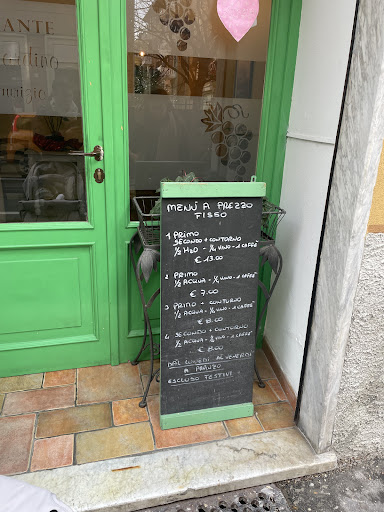 ANTE
MENÙ A PREZZO
FISSO
1 PRIMO
SECONDO + CONTORNO
1/2 H2O - 1/4 VINO - 1 CAFFÈ
€ 13.00
2 PRIMO
1/2 ACQUA - 1/4 VINO - 1 CAFFE'
€ 7.00
3 PRIMO + CONTORNO
1/2 ACQUA - 1/4 VINO - 1 CAFFE'
€ 8.00
4 SECONDO + CONTORNO
1/2 ACQUA - 1/4 VINO - 1 CAFFE'
€ 8.00
DAL LUNEDI AL VENERDI
A PRANZO
ESCLUSO FESTIVI